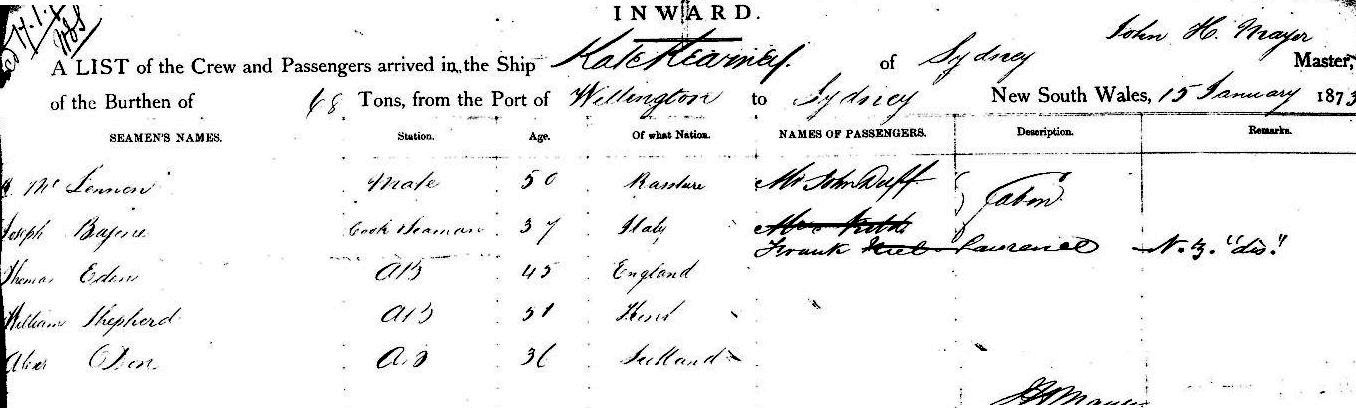 INWARD.
John H. Mayer
A LIST of the Crew and Passengers arrived in the Ship Kate Kearney of Sydney Master,
of the Burthen of 68 Tons, from the Port of Wellington to Sydney New South Wales, 15 January 1873
SEAMEN'S NAMES. Station. Age. Of what Nation. NAMES OF PASSENGERS. Description. Remarks.
Mc Lennon Mate 50 Mr John Duff Cabin
Joseph Cook Seaman 37 Italy Mr
Frank Laurence N.Z. "dis."
Thomas Eden AB 45 England
William Shepherd AB 31 Kent
AB 36